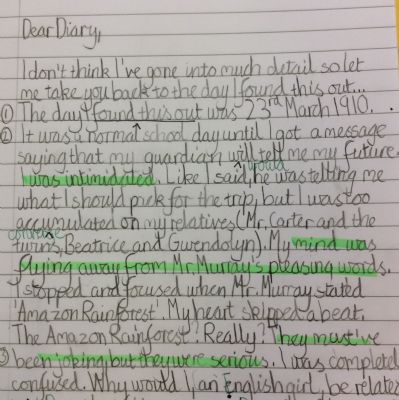 Dear Diary,
I don't think I've gone into much detail so let
me take you back to the day I found this out...
① The day I found this out was 23rd March 1910.
② It was a normal school day until I got a message
saying that my guardian will tell me my future.
would
I was intimidated. Like I said, he was telling me
what I should pick for the trip, but I was too
accumulated on my relatives (Mr. Carter and the
twins, Beatrice and Gwendolyn). My mind was
flying away from Mr. Murray's pleasing words.
I stopped and focused when Mr. Murray stated
'Amazon Rainforest'. My heart skipped a beat.
The Amazon Rainforest! Really? They must've
③ been joking but they were serious. I was completel
confused. Why would I, an English girl, be related